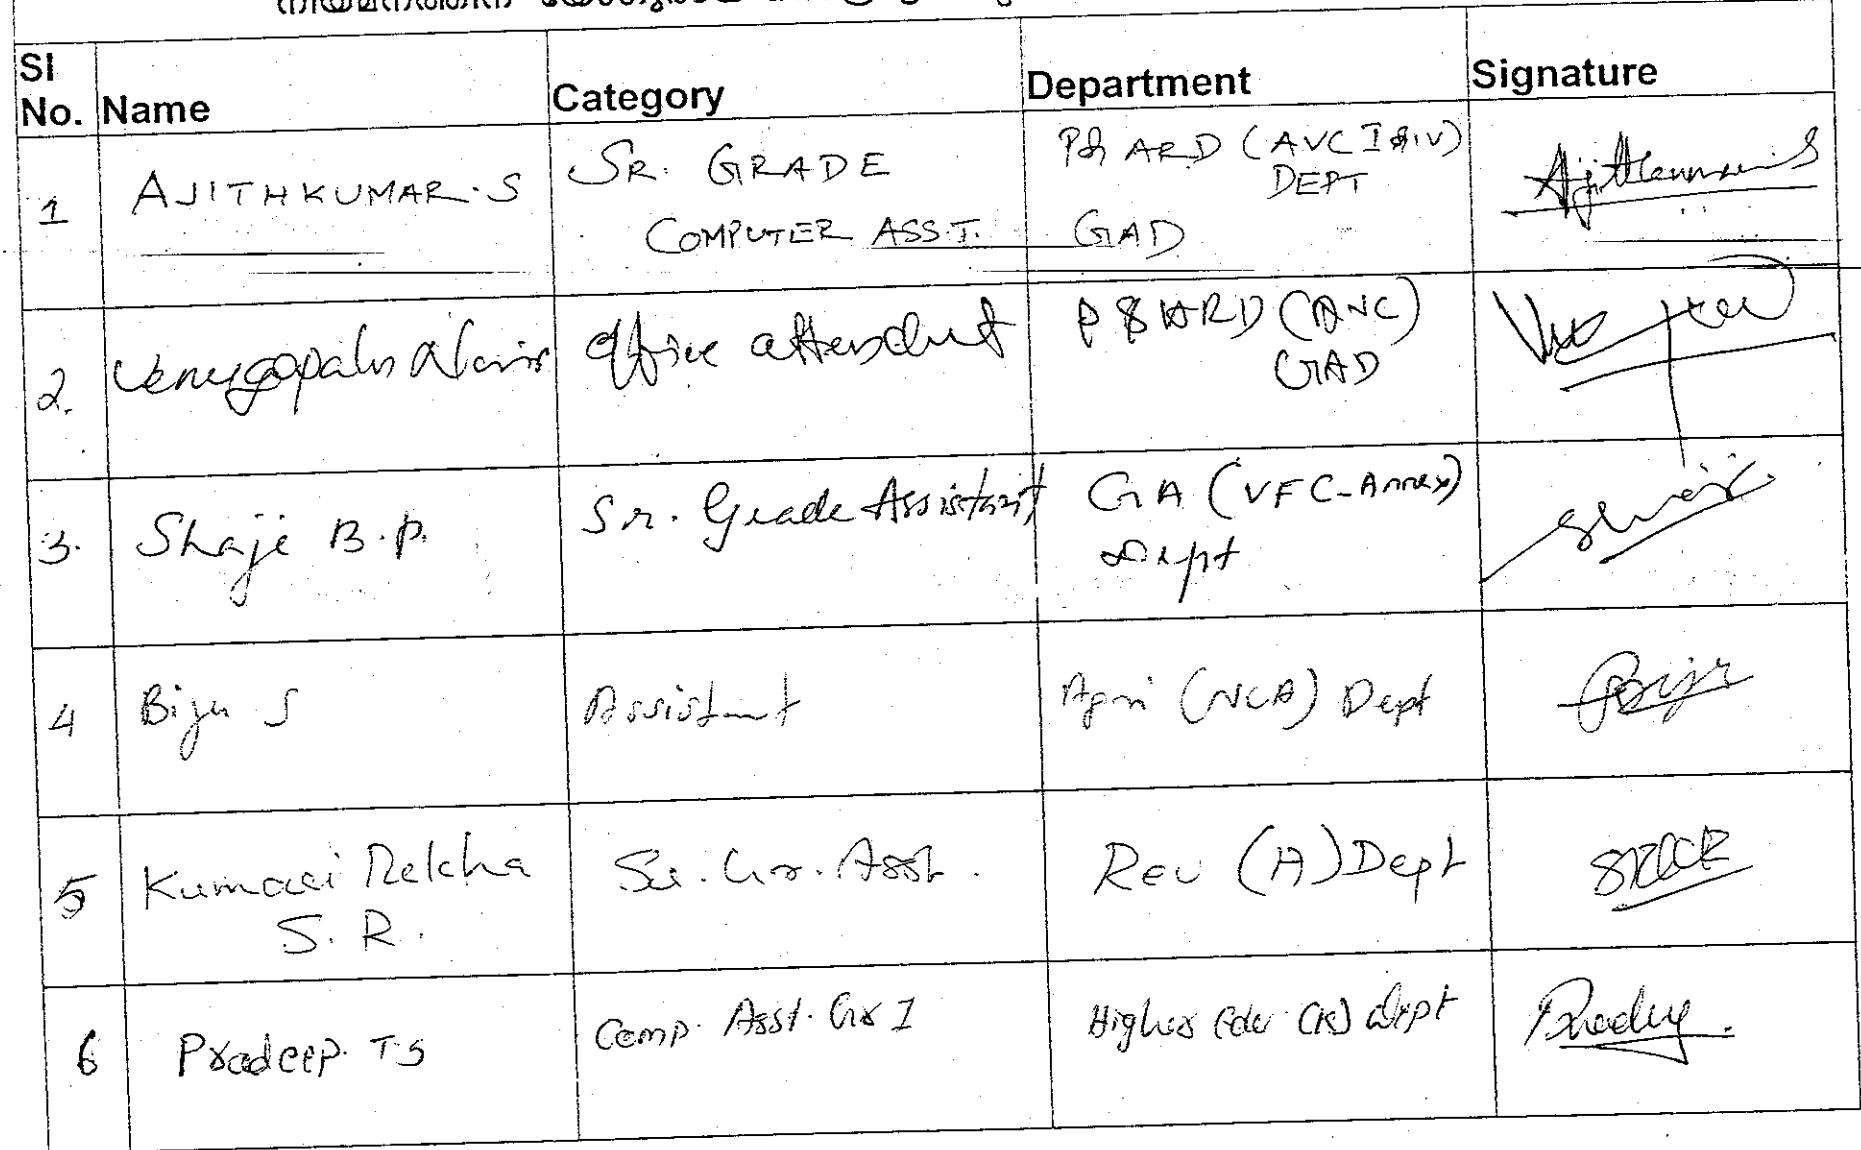 SI No. Name Category Department Signature
1 AJITHKUMAR.S SR. GRADE COMPUTER ASST. P& ARD (AVC I &IV) DEPT GAD Ajithkumar S
2. Venugopalan Nair Office attendent P & ARD (AVC) GAD
3. Shaji B.P. Sr. Grade Assistant GA (VFC-Annex) Dept Shaji
4 Biju S Assistant Agri (NCA) Dept Biju
5 Kumari Rekha S.R. Sr. Gr. Asst. Rev (A) Dept
6 Pradeep. T S Comp. Asst. Gr I Higher Edu (K) Dept Pradeep.